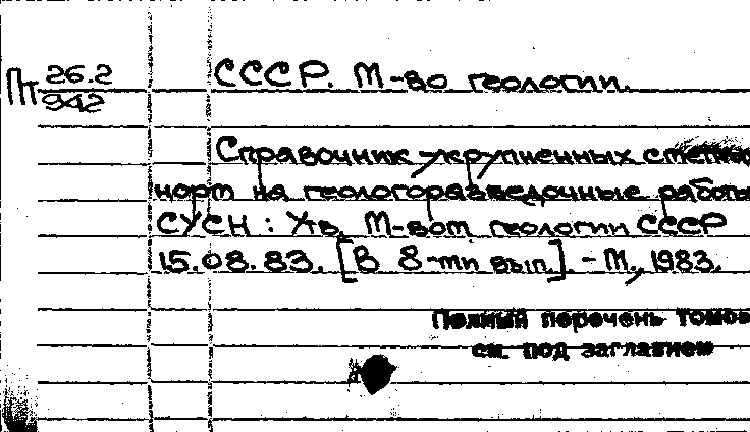 Пт 26.2
942
СССР. М-во геологии.
Справочник укрупненных сметных
норм на геологоразведочные работы
СУСН : Утв. М-вом геологии СССР
15.08.83. [В 8-ми вып.]. - М., 1983.
Полный перечень томов
см. под заглавием